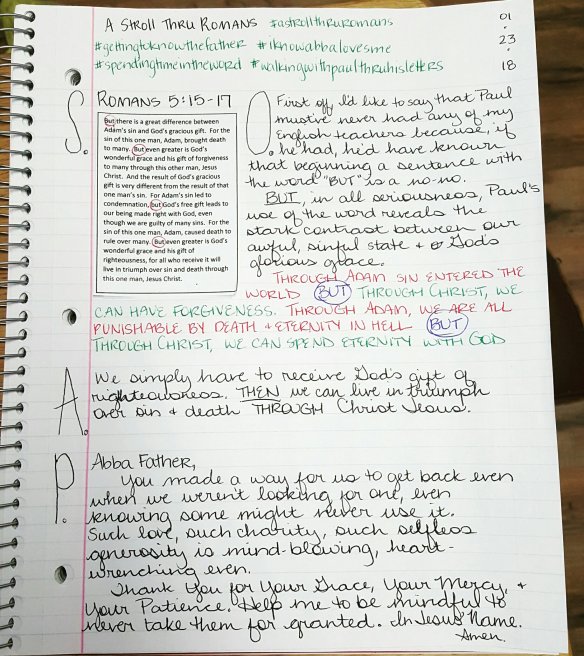 A Stroll Thru Romans #astrollthruromans
01
#gettingtoknowthefather #iknowabbalovesme
23
#spendingtimeintheword #walkingwithpaulthruhisletters
18
S.
Romans 5:15-17
But there is a great difference between
Adam's sin and God's gracious gift. For the
sin of this one man, Adam, brought death
to many. But even greater is God's
wonderful grace and his gift of forgiveness
to many through this other man, Jesus
Christ. And the result of God's gracious
gift is very different from the result of that
one man's sin. For Adam's sin led to
condemnation, but God's free gift leads to
our being made right with God, even
though we are guilty of many sins. For the
sin of this one man, Adam, caused death to
rule over many. But even greater is God's
wonderful grace and his gift of
righteousness, for all who receive it will
live in triumph over sin and death through
this one man, Jesus Christ.
O.
First off, I'd like to say that Paul
must've never had any of my
English teachers because, if
he had, he'd have known
that beginning a sentence with
the word "BUT" is a no-no.
BUT, in all seriousness, Paul's
use of the word reveals the
stark contrast between our
awful, sinful state + God's
glorious grace.
THROUGH ADAM SIN ENTERED THE
WORLD BUT THROUGH CHRIST, WE
CAN HAVE FORGIVENESS. THROUGH ADAM, WE ARE ALL
PUNISHABLE BY DEATH + ETERNITY IN HELL BUT
THROUGH CHRIST, WE CAN SPEND ETERNITY WITH GOD
A.
We simply have to receive God's gift of
righteousness. THEN we can live in triumph
over sin + death THROUGH Christ Jesus.
P.
Abba Father,
You made a way for us to get back even
when we weren't looking for one, even
knowing some might never use it.
Such love, such charity, such selfless
generosity is mind-blowing, heart-
wrenching even.
Thank You for Your Grace, Your Mercy, +
Your Patience. Help me to be mindful to
never take them for granted. In Jesus' Name.
Amen.